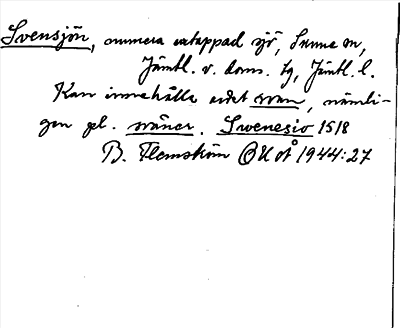 Svensjön, numera uttappad sjö, Sunne sn,
Jämtl. v. doms. tg, Jämtl. l.
Kan innehålla ordet svan, nämli-
gen pl. svaner. Swenesio 1518
B. Flemström OUoÅ 1944:27